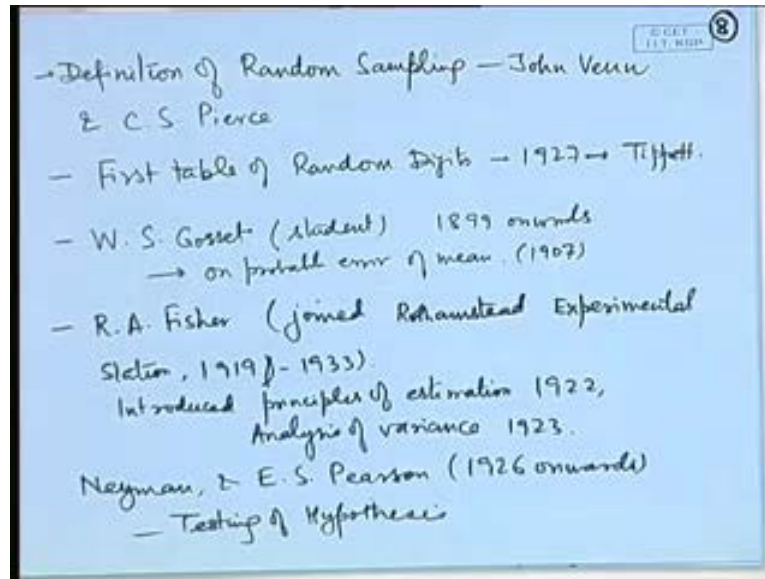 © CET
I.I.T. KGP
8
→ Definition of Random Sampling – John Venn
& C S Pierce
– First table of Random Digits – 1927 → Tippett.
– W. S. Gosset (student) 1899 onwards
→ on probable error of mean. (1907)
– R. A. Fisher (joined Rothamstead Experimental
Station, 1919 - 1933).
Introduced principles of estimation 1922,
Analysis of variance 1923.
Neyman, & E. S. Pearson (1926 onwards)
– Testing of Hypothesis